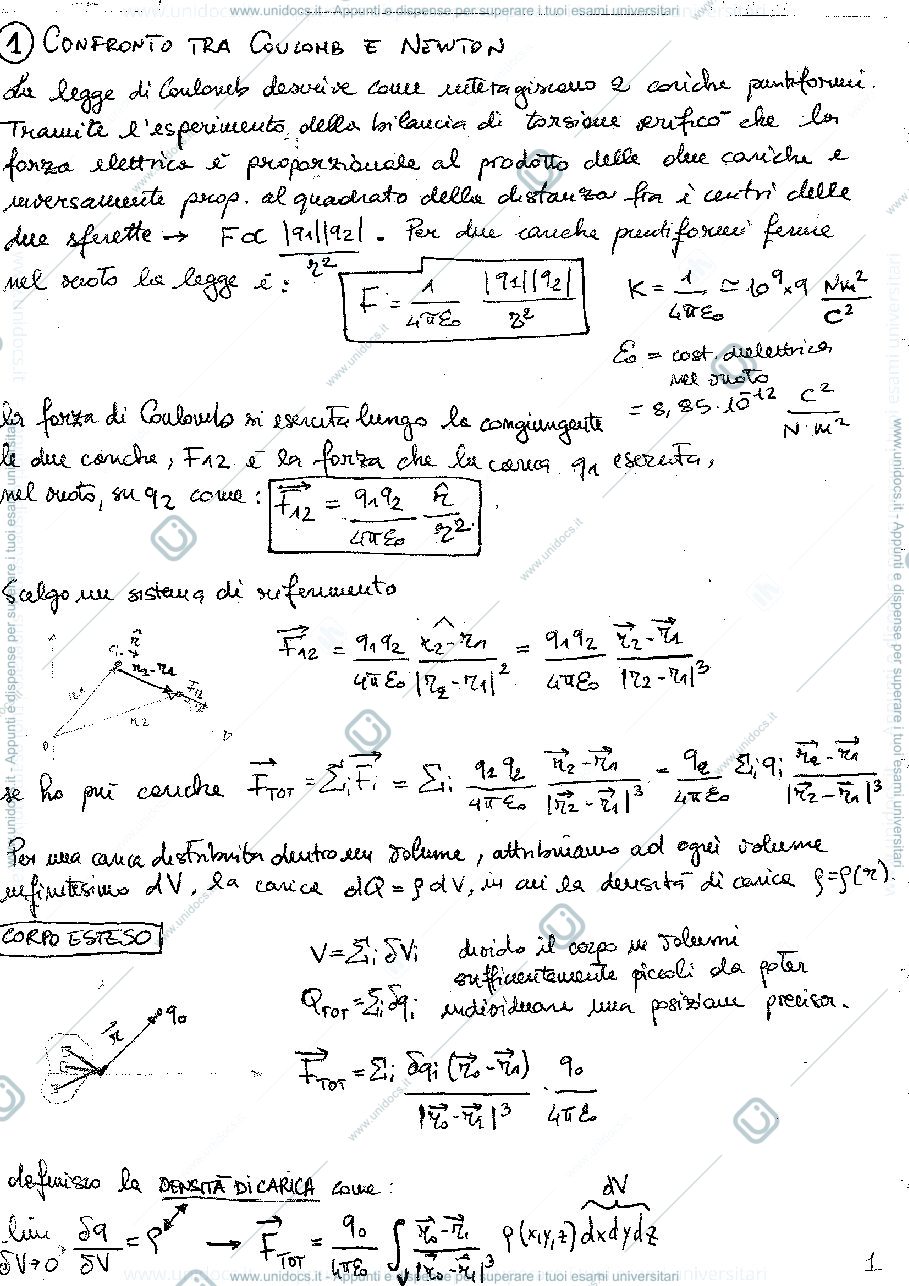 www.unidocs.it - Appunti e dispense per superare i tuoi esami universitari
1 CONFRONTO TRA COULOMB E NEWTON
La legge di Coulomb descrive come interagiscono 2 cariche puntiformi.
Tramite l'esperimento della bilancia di torsione verificò che la
forza elettrica è proporzionale al prodotto delle due cariche e
inversamente prop. al quadrato della distanza fra i centri delle
due sferette → F ∝ |q1||q2| / r² . Per due cariche puntiformi ferme
nel vuoto la legge è: F = 1/4πε0 |q1||q2| / r² K = 1/4πε0 ≃ 10⁹×9 Nm²/C²
ε0 = cost. dielettrica
nel vuoto
= 8,85·10⁻¹² C²/N·m²
la forza di Coulomb si esercita lungo la congiungente
le due cariche, F12 è la forza che la carica q1 esercita,
nel vuoto, su q2 come: F⃗12 = q1q2/4πε0 r̂/r²
Scelgo un sistema di riferimento
F⃗12 = q1q2/4πε0 r2-r1^/|r2-r1|² = q1q2/4πε0 r⃗2-r⃗1/|r2-r1|³
r̂
r2-r1
F12
r2
0
se ho più cariche F⃗TOT = Σi F⃗i = Σi q2q2/4πε0 r⃗2-r⃗1/|r⃗2-r⃗1|³ = q2/4πε0 Σi qi r⃗2-r⃗1/|r⃗2-r⃗1|³
Per una carica distribuita dentro un volume, attribuiamo ad ogni volume
infinitesimo dV, la carica dQ = ρdV, in cui la densità di carica ρ=ρ(r).
CORPO ESTESO
V = Σi δVi divido il corpo in volumi
sufficientemente piccoli da poter
QTOT = Σi δqi individuare una posizione precisa.
r⃗ q0
F⃗TOT = Σi δqi (r⃗0-r⃗1)/|r⃗0-r⃗1|³ · q0/4πε0
definisco la DENSITÀ DI CARICA come:
dV
lim δV→0 δq/δV = ρ → F⃗TOT = q0/4πε0 ∫V r⃗0-r⃗1/|r⃗0-r⃗1|³ ρ(x,y,z) dxdydz
1
www.unidocs.it - Appunti e dispense per superare i tuoi esami universitari